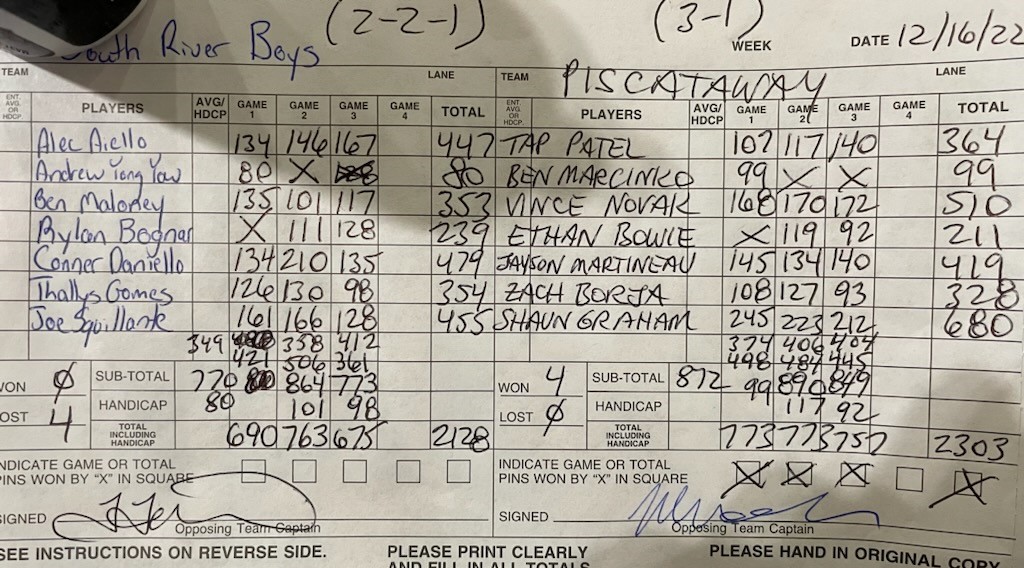 South River Boys (2-2-1) (3-1) WEEK DATE 12/16/22
TEAM LANE TEAM PISCATAWAY LANE
ENT. AVG. OR HDCP. PLAYERS AVG/HDCP GAME 1 GAME 2 GAME 3 GAME 4 TOTAL ENT. AVG. OR HDCP. PLAYERS AVG/HDCP GAME 1 GAME 2 GAME 3 GAME 4 TOTAL
Alec Aiello 134 146 167 447 TAP PATEL 107 117 140 364
Andrew 80 X 80 BEN MARCINKO 99 X X 99
Ben Maloney 135 101 117 353 VINCE NOVAK 168 170 172 510
Rylan Bognar X 111 128 239 ETHAN BOWIE X 119 92 211
Conner Daniello 134 210 135 479 JAYSON MARTINEAU 145 134 140 419
Thallys Gomes 126 130 98 354 ZACH BORJA 108 127 93 328
Joe Squillante 161 166 128 455 SHAUN GRAHAM 245 223 212 680
349 358 412 374 406 404
421 506 361 498 484 445
WON 0 SUB-TOTAL 770 864 773 WON 4 SUB-TOTAL 872 890 849
LOST 4 HANDICAP 80 101 98 LOST 0 HANDICAP 99 117 92
TOTAL INCLUDING HANDICAP 690 763 675 2128 TOTAL INCLUDING HANDICAP 773 773 757 2303
INDICATE GAME OR TOTAL PINS WON BY "X" IN SQUARE INDICATE GAME OR TOTAL PINS WON BY "X" IN SQUARE X X X X
SIGNED Opposing Team Captain SIGNED Opposing Team Captain
SEE INSTRUCTIONS ON REVERSE SIDE. PLEASE PRINT CLEARLY AND FILL IN ALL TOTALS PLEASE HAND IN ORIGINAL COPY